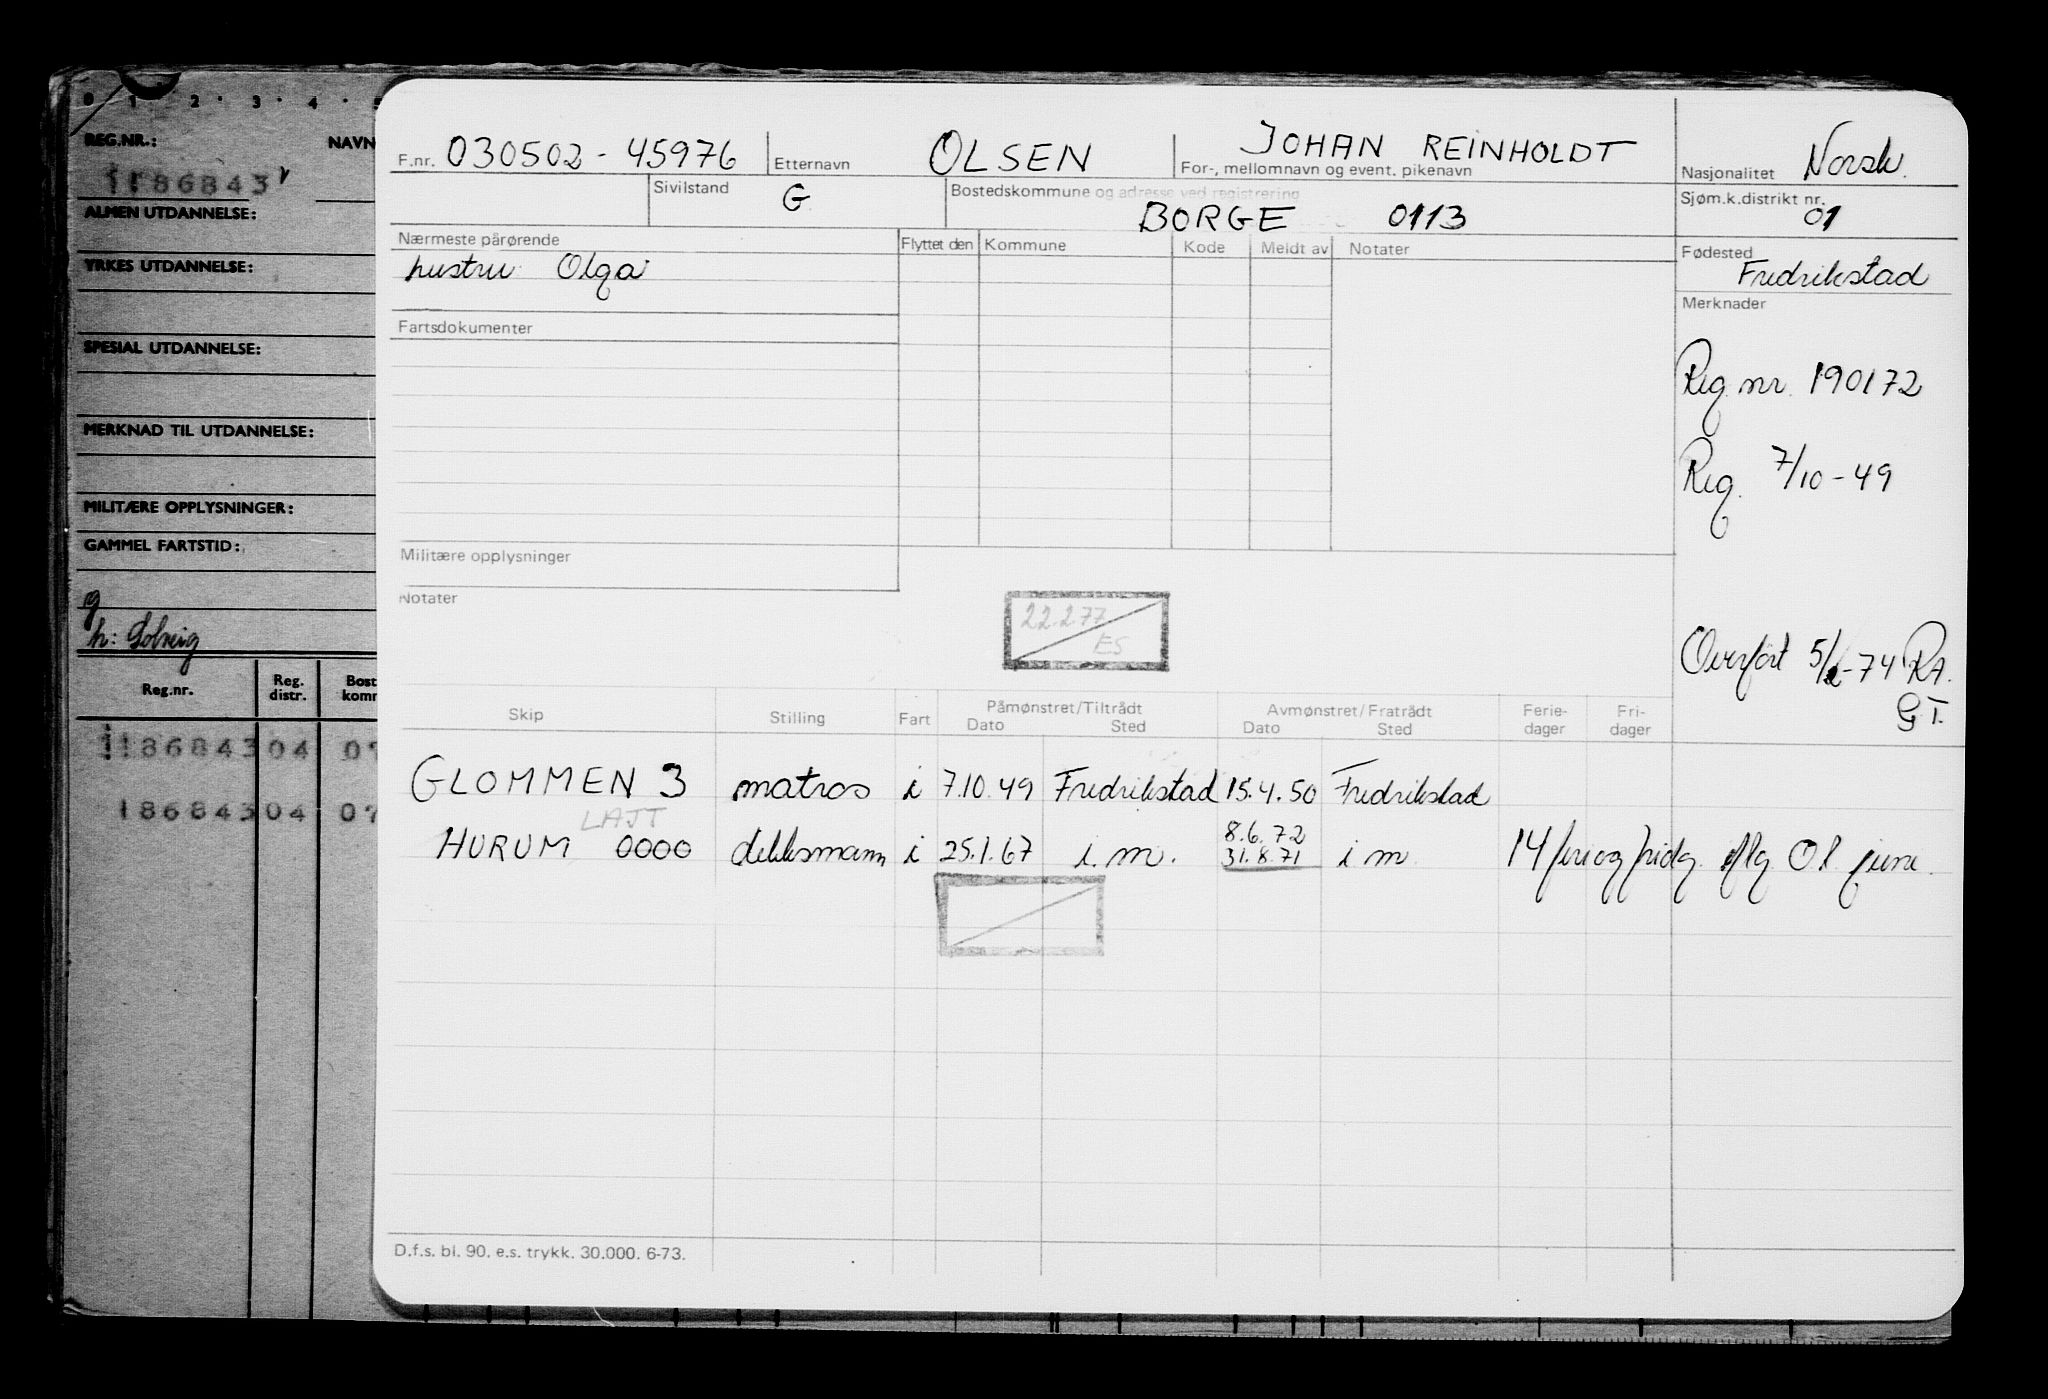 0 1 2 3 4 5
REG.NR.: NAVN
1186843
ALMEN UTDANNELSE:
YRKES UTDANNELSE:
SPESIAL UTDANNELSE:
MERKNAD TIL UTDANNELSE:
MILITÆRE OPPLYSNINGER:
GAMMEL FARTSTID:
g
h: Solveig
Reg.nr. Reg. distr. Bost komm
1186843 04 07
186843 04 07
F.nr. 030502 - 45976 Etternavn OLSEN JOHAN REINHOLDT
For-, mellomnavn og event. pikenavn
Nasjonalitet Norsk.
Sivilstand G Bostedskommune og adresse ved registrering
BORGE 0113
Sjøm.k.distrikt nr.
01
Nærmeste pårørende Flyttet den Kommune Kode Meldt av Notater
hustru Olga
Fødested
Fredrikstad
Merknader
Fartsdokumenter
Reg. nr. 190172
Reg. 7/10 - 49
Militære opplysninger
Notater
22.2.77
ES
Overført 5/2-74 RA.
G.T.
Skip Stilling Fart Påmønstret/Tiltrådt Avmønstret/Fratrådt Ferie- Fri-
Dato Sted Dato Sted dager dager
GLOMMEN 3 matros i 7.10.49 Fredrikstad 15.4.50 Fredrikstad
LAJT
8.6.72
HURUM 0000 dekksmann i 25.1.67 i m. 31.8.71 i m. 14 ferie og fridg. iflg O.l. june.
D.f.s. bl. 90. e.s. trykk. 30.000. 6-73.